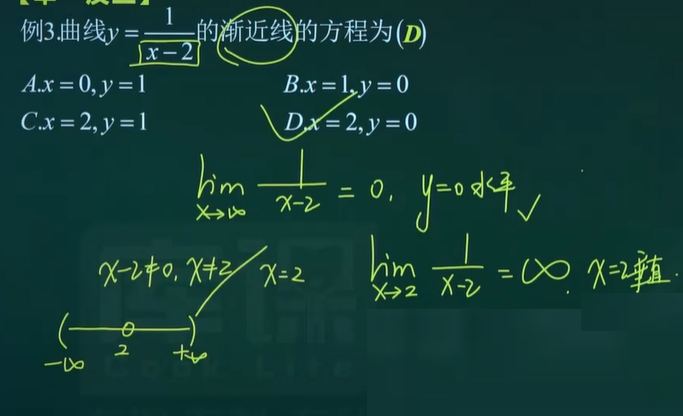 例3.曲线y=1/(x-2)的渐近线的方程为(D)
A.x=0,y=1 B.x=1,y=0
C.x=2,y=1 D.x=2,y=0
lim x→∞ 1/(x-2) = 0. y=0水平
x-2≠0, x≠2 x=2 lim x→2 1/(x-2) = ∞. x=2垂直.
( 2 )
-∞ +∞